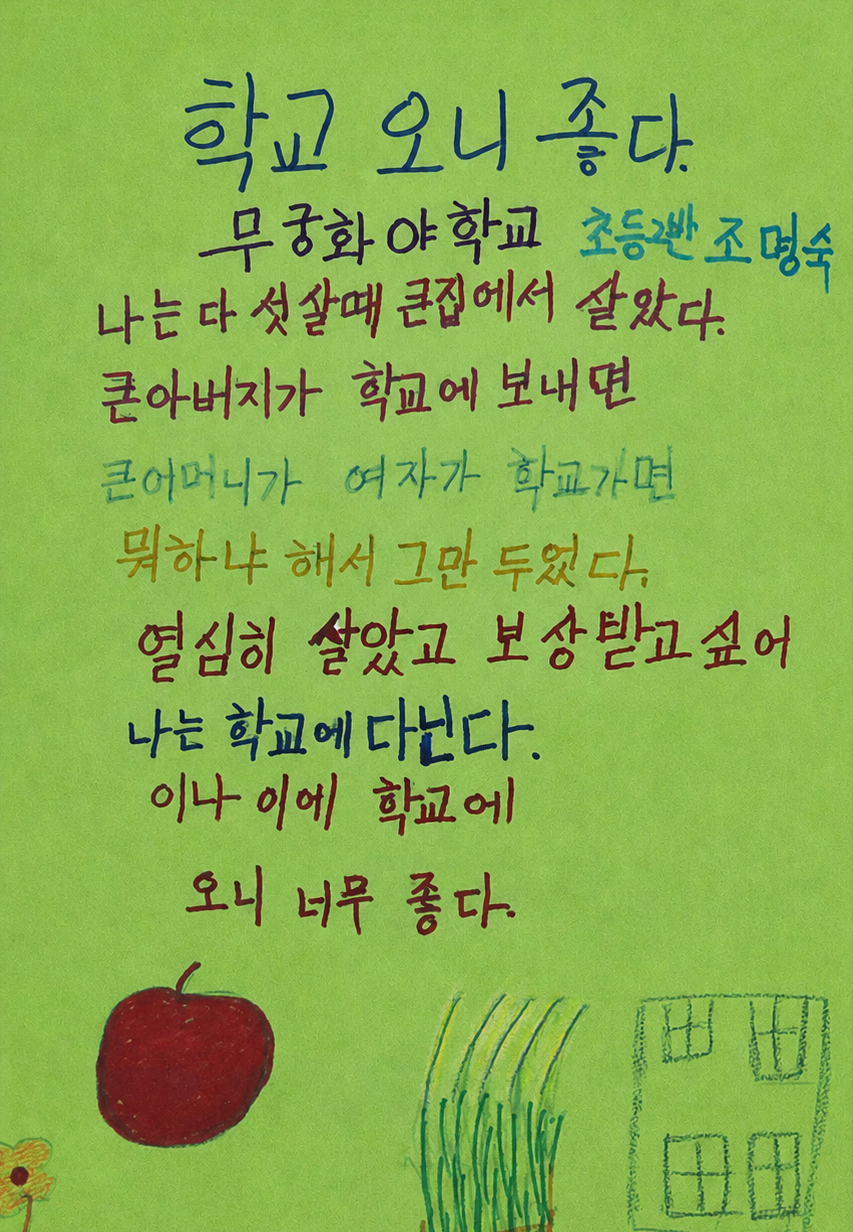 학교 오니 좋다.
무궁화 야학교 초등2반 조명숙
나는 다섯살때 큰집에서 살았다.
큰아버지가 학교에 보내면
큰어머니가 여자가 학교가면
뭐하냐 해서 그만 두었다.
열심히 살았고 보상받고 싶어
나는 학교에 다닌다.
이나 이에 학교에
오니 너무 좋다.